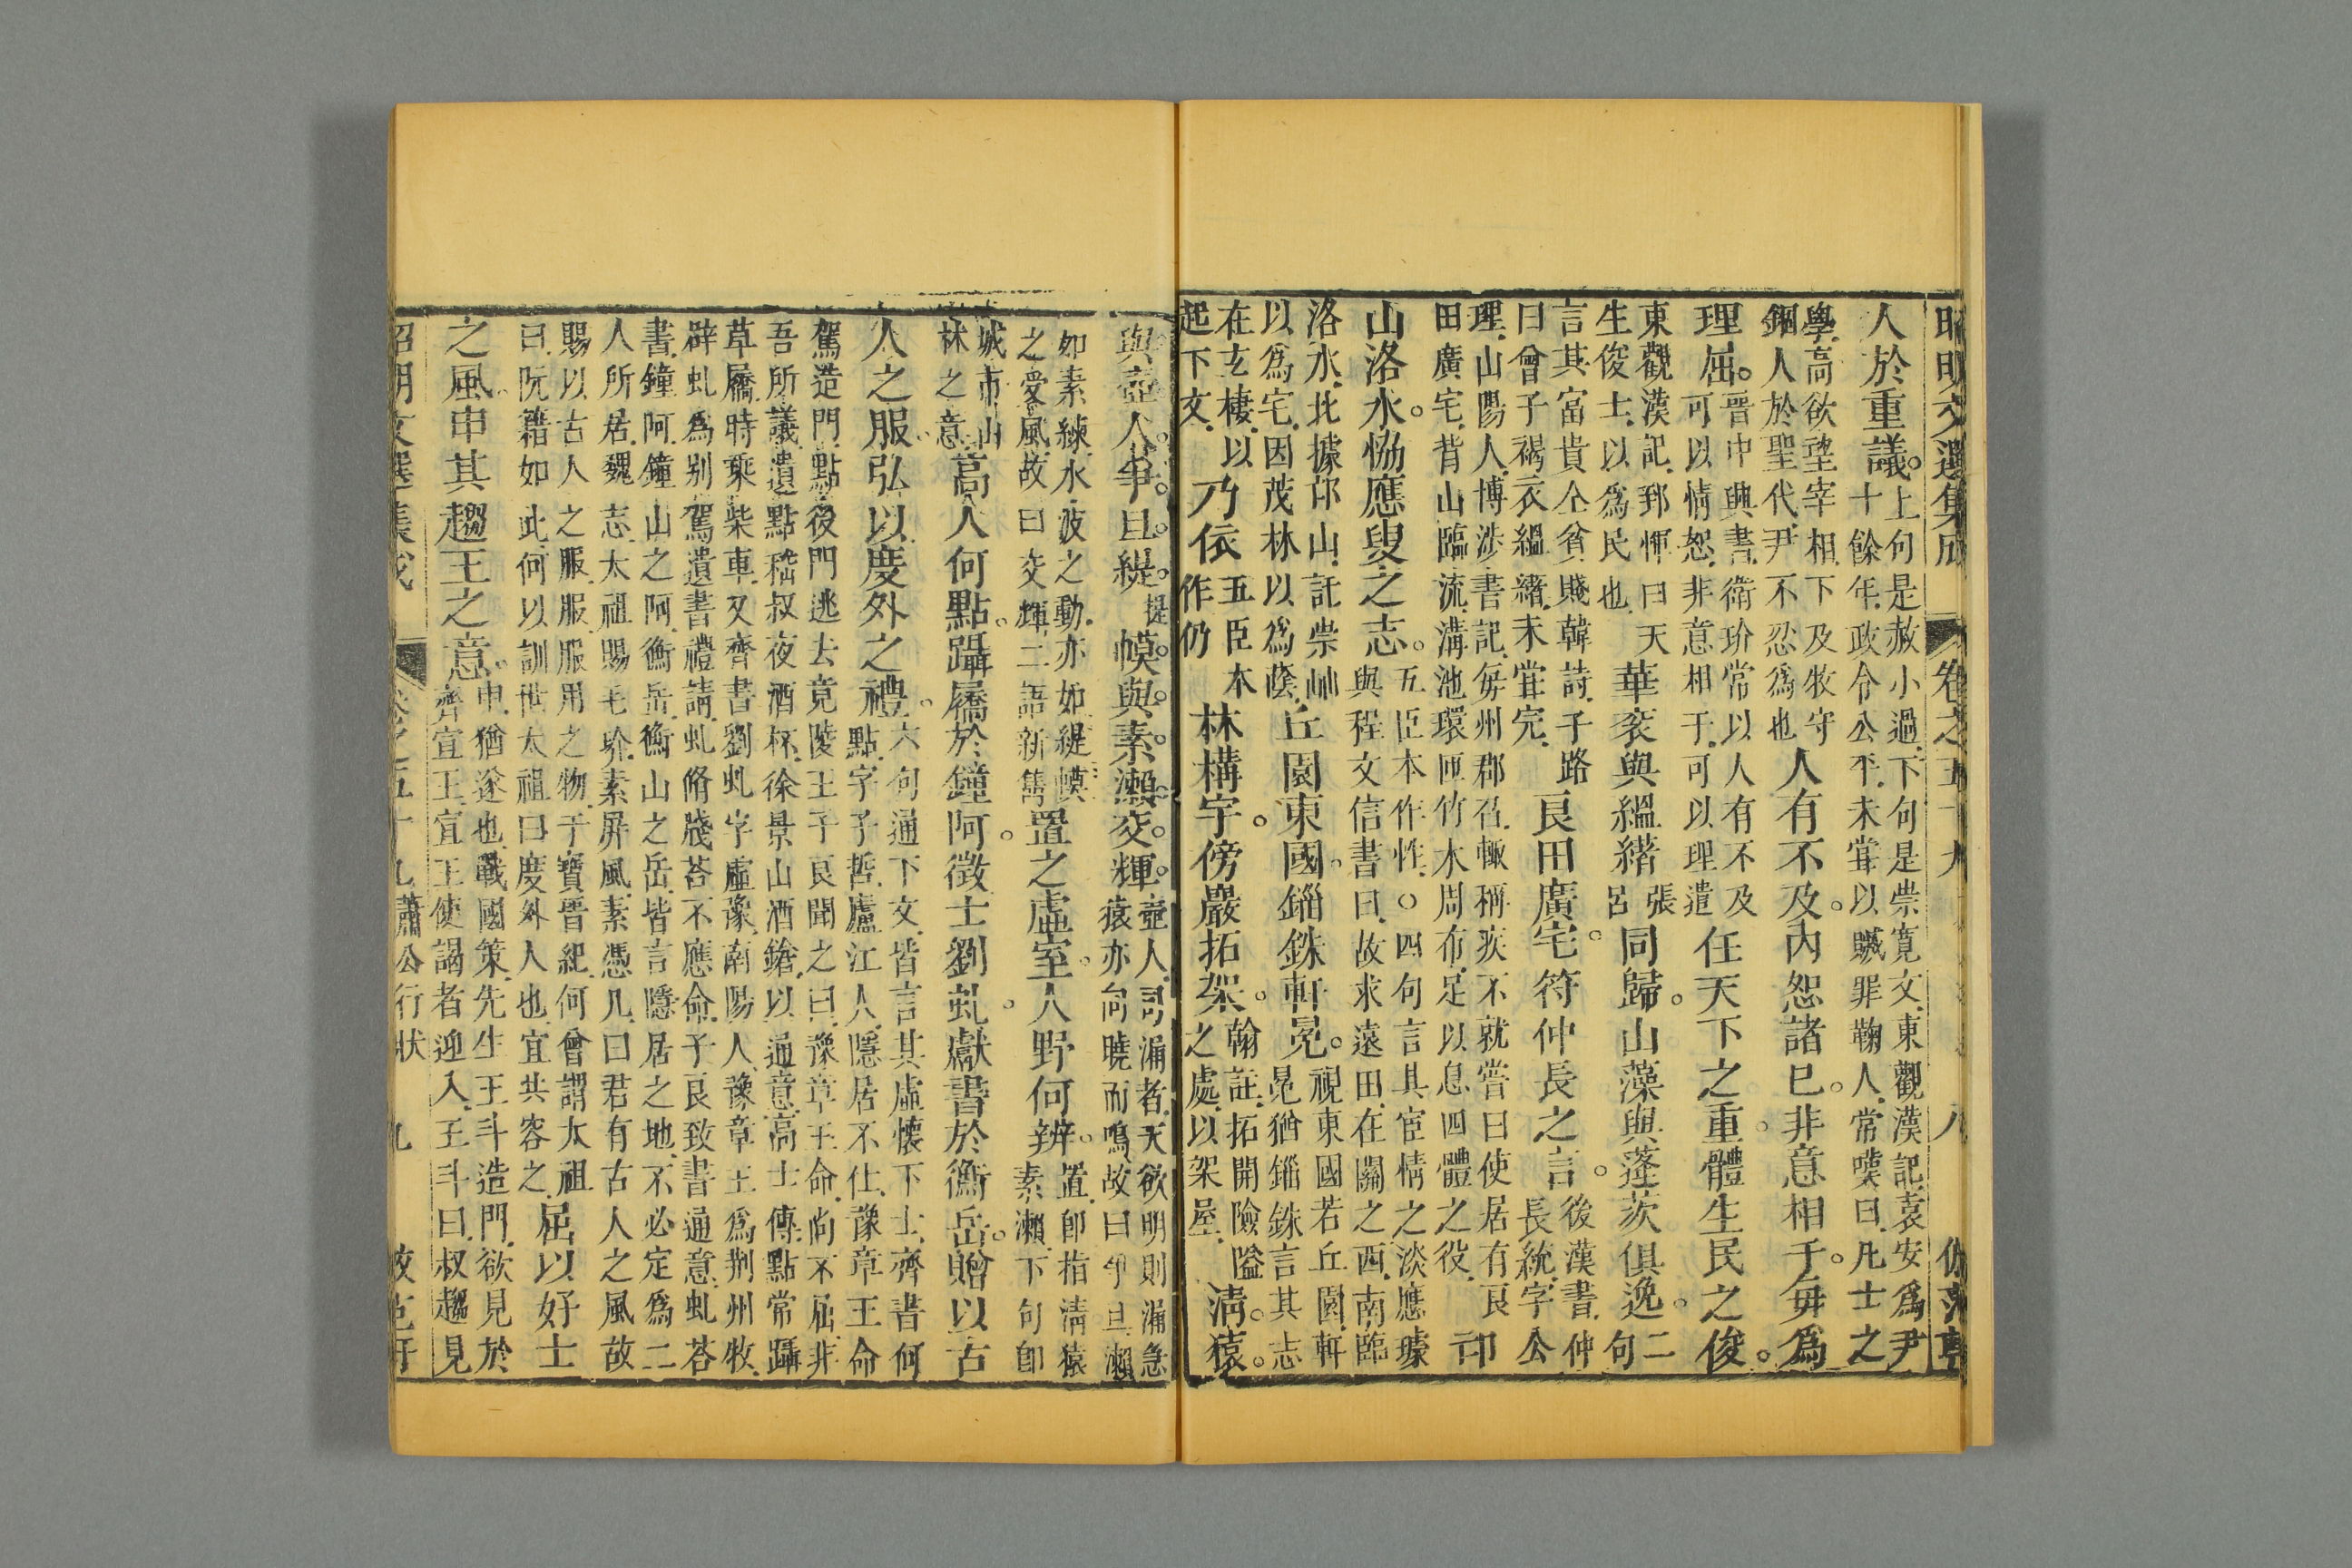 昭明文選集成 卷之五十九 八
人於重議。
上句是赦小過,下句是崇寬文,東觀漢記袁安爲尹
十餘年,政令公平,未嘗以贓罪鞠人,常嘆曰,凡士之
學,高欲望宰相,下及牧守
錮人於聖代,尹不忍爲也
人有不及。內恕諸已。非意相干。每爲
理屈。
晉中興書,衛玠常以人有不及
可以情恕,非意相干,可以理遣
任天下之重。體生民之俊。
東觀漢記,郅惲曰天
生俊士,以爲民也
華衮與縕緖
張
呂
同歸。山藻與蓬茨俱逸。
二
句
言其富貴仝貧賤韓詩,子路
曰曾子褐衣縕緖,未嘗完,
良田廣宅。符仲長之言。
後漢書,仲
長統,字公
理,山陽人,博涉書記,每州郡召,輙稱疾不就嘗曰使居有良
田廣宅,背山臨流,溝池環匝竹木周布,足以息四體之役,
山洛水。恊應叟之志。
五臣本作性。○四句言其宦情之淡應璩
與程文信書曰,故求遠田,在關之西,南臨
洛水,北據邙山,託崇岫
以爲宅,因茂林以爲蔭,
丘園東國。錙銖軒冕。
視東國若丘園,軒
冕猶錙銖言其志
在玄棲,以
起下文,
乃依
五臣本
作仍
林構宇。傍巖拓架。
翰註,拓開險隘
之處,以架屋,
清猿。
與壺人。爭。旦。緹。
提
幙。與。素。瀨。交。輝。
壺人,司漏者,天欲明則漏急
猿亦向曉而鳴,故曰爭旦瀨
如素練,水波之動,亦如緹幙
之愛風,故曰交輝,二語新雋
置之虛室。人野何辨。
置,卽指清猿
素瀨,下句卽
城市山
林之意
高人何點。躡屩於鐘阿。徵士劉虬。獻書於衡岳。贈以古
人之服。弘以度外之禮。
六句通下文,皆言其虛懷下士,齊書何
點,字子哲,廬江人,隱居不仕,豫章王命
駕造門,點後門逃去竟陵王子良聞之曰,豫章王命,尚不屈,非
吾所議,遺點嵇叔夜酒杯,徐景山酒鎗,以通意,高士傳,點常躡
草屩,時乘柴車,又齊書劉虬字虛豫,南陽人,豫章王爲荆州牧,
辟虬爲別駕遺書禮請,虬脩牋荅不應命,子良致書通意,虬荅
書,鐘阿,鐘山之阿,衡岳,衡山之岳,皆言隱居之地,不必定爲二
人所居,魏志,太祖賜毛玠,素屏風,素憑几,曰君有古人之風故
賜以古人之服,服服用之物,于寶晉紀,何曾謂太祖
曰,阮籍如此,何以訓世,太祖曰度外人也,宜共容之,
屈以好士
之風。申其趨王之意。
申,猶遂也,戰國策,先生王斗造門,欲見於
齊宣王,宣王使謁者迎入,王斗曰,叔趨見
昭明文選集成 卷之五十九 蕭公行狀 九